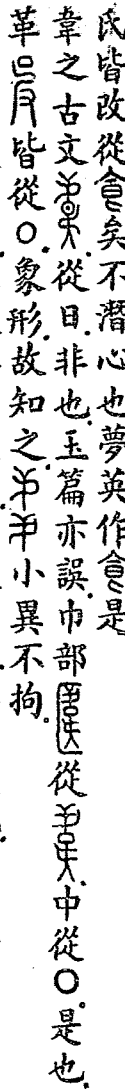 氏皆改從矣不潛心也夢英作是
韋之古文從日非也玉篇亦誤巾部從中從〇是也
革皆從〇象形故知之小異不拘